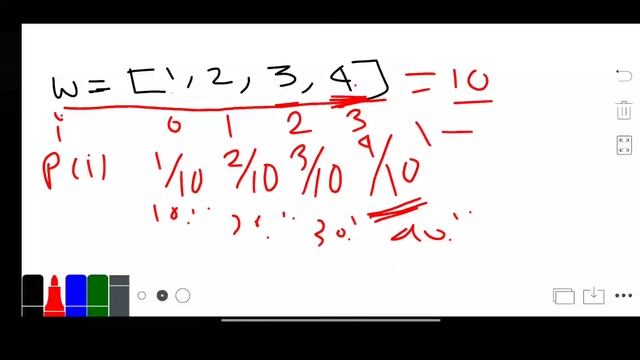 w = [1, 2, 3, 4] = 10
i 0 1 2 3
P(i) 1/10 2/10 3/10 4/10
10% 20% 30% 40%